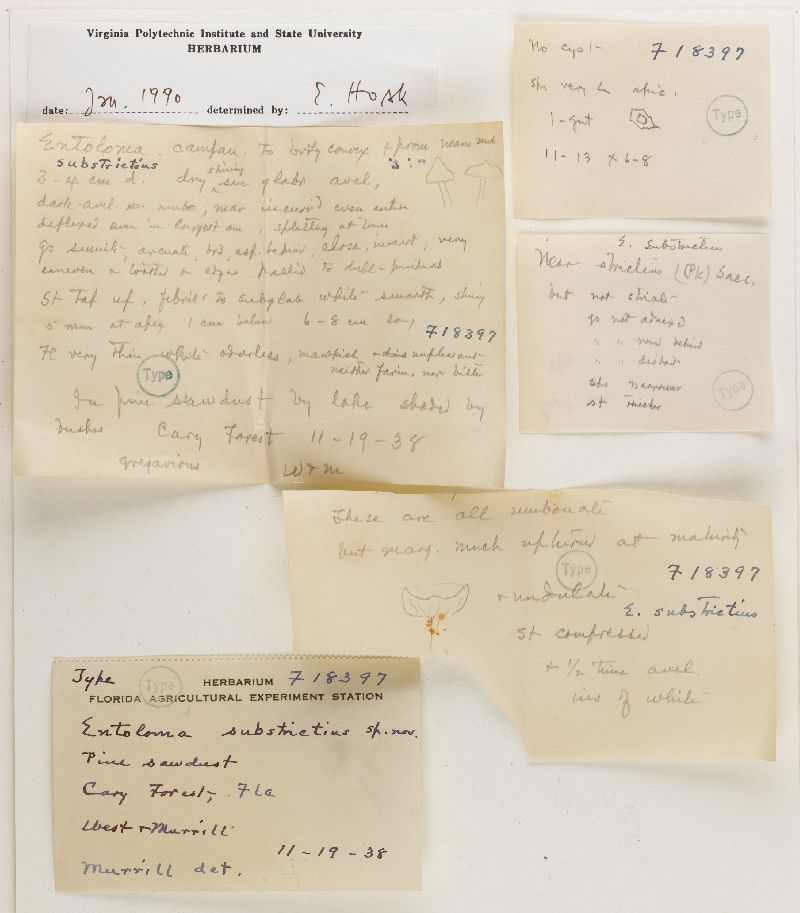 Virginia Polytechnic Institute and State University
HERBARIUM
date: Jan. 1990 determined by: E. Horak
Entoloma campan. to brdly convex + prom
substrictius
3-4 cm d. dry shiny glabr avel,
dark-avel. on umbo, mar incurvd even entire
deflexed even in largest one, splitting at times
gs sinuate, arcuate, brd, esp. behind, close, insert, very
uneven or toothd on edges pallid to dull-
St Tap up, fibril to subglab white smooth, shiny
5 mm at apex 1 cm below 6-8 cm long
718397
Fl very thin white odorless, mawkish
neither farin. nor bitter
Type
In pine sawdust by lake shaded by
bushes Cary Forest 11-19-38
gregarious W & M
No cyst- 718397
Sps very apic.
Type
1-gut
11-13 x 6-8
E. substrictius
Near strictius (Pk) Sacc.
but not striate
gs not adnexd
" " rond behind
" " distant
sps narrower
st thicker
Type
These are all umbonate
but marg. much upturned at maturity
Type
718397
+ undulate
E. substrictius
St compressed
+ 1/2 time avel.
ins of white
Type Type HERBARIUM 718397
FLORIDA AGRICULTURAL EXPERIMENT STATION
Entoloma substrictius sp. nov.
Pine sawdust
Cary Forest, Fla
West & Murrill
11-19-38
Murrill det.